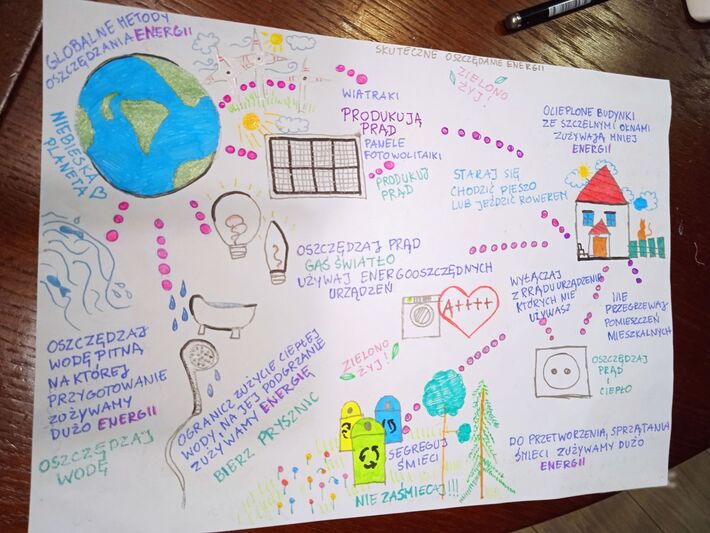 GLOBALNE METODY
OSZCZĘDZANIA ENERGII
SKUTECZNE OSZCZĘDANIE ENERGII
ZIELONO
ŻYJ!
NIEBIESKA
PLANETA
WIATRAKI
PRODUKUJĄ
PRĄD
PANELE
FOTOWOLITAIKI
PRODUKUJ
PRĄD
OCIEPLONE BUDYNKI
ZE SZCZELNYMI OKNAMI
ZUŻYWAJĄ MNIEJ
ENERGII
STARAJ SIĘ
CHODZIĆ PIESZO
LUB JEŹDZIĆ ROWEREM
OSZCZĘDZAJ PRĄD
GAŚ ŚWIATŁO
UŻYWAJ ENERGOOSZCZĘDNYCH
URZĄDZEŃ
A++++
WYŁĄCZAJ
Z PRĄDU URZĄDZENIA
KTÓRYCH NIE
UŻYWASZ
NIE
PRZEGRZEWAJ
POMIESZCZEŃ
MIESZKALNYCH
OSZCZĘDZAJ
PRĄD
I
CIEPŁO
OSZCZĘDZAJ
WODĘ PITNĄ
NA KTÓREJ
PRZYGOTOWANIE
ZUŻYWAMY
DUŻO ENERGII
OSZCZĘDZAJ
WODĘ
OGRANICZ ZUŻYCIE CIEPŁEJ
WODY, NA JEJ PODGRZANIE
ZUŻYWAMY ENERGIĘ
BIERZ PRYSZNIC
ZIELONO
ŻYJ!
SEGREGUJ
ŚMIECI
NIE ZAŚMIECAJ!!!
DO PRZETWORZENIA, SPRZĄTANIA
ŚMIECI ZUŻYWAMY DUŻO
ENERGII